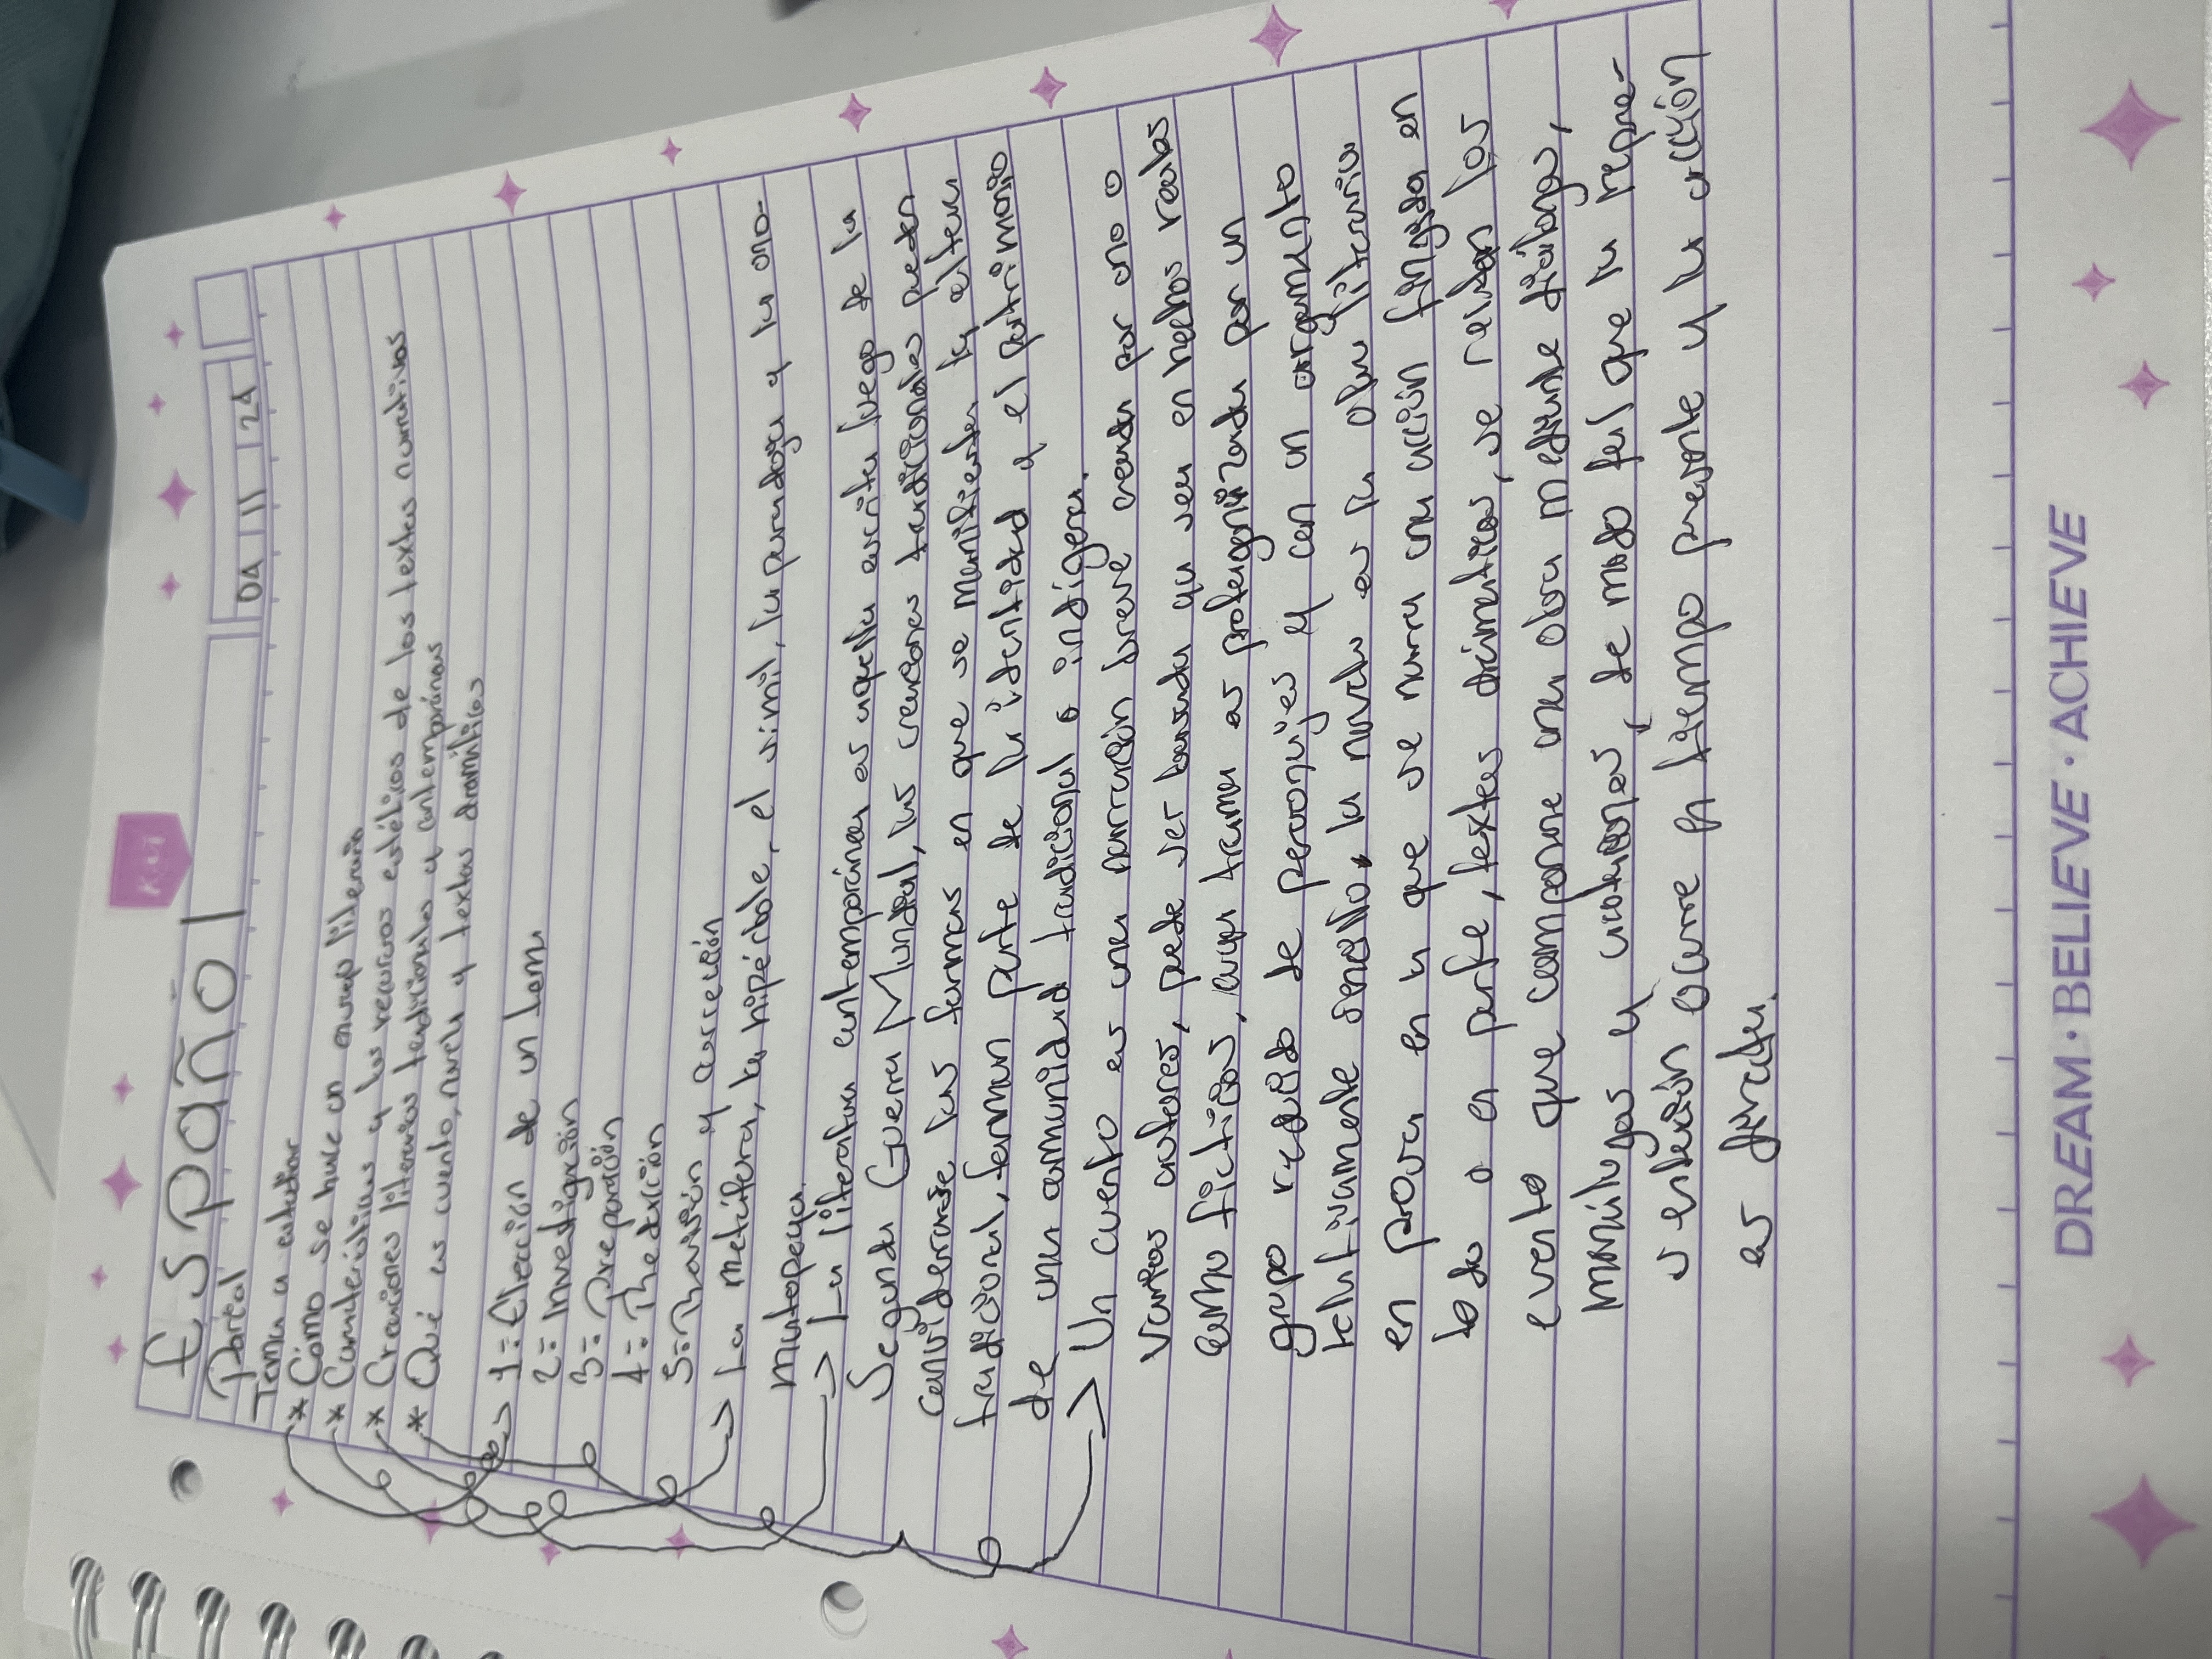 Kiut
Español
04 11 24
Parcial
Tema a estudiar
* Cómo se hace un ensayo literario
* Características y los recursos estéticos de los textos narrativos
* Creaciones literarias tradicionales y contemporáneas
* Qué es cuento, novela y textos dramáticos
1= Elección de un tema
2= Investigación
3= Preparación
4= Redacción
5= Revisión y corrección
> La metáfora, la hipérbole, el símil, la paradoja y la ono-
matopeya.
> La literatura contemporánea es aquella escrita luego de la
Segunda Guerra Mundial, las creaciones tradicionales pueden
considerarse las formas en que se manifiestan la cultura
tradicional, forman parte de la identidad y el patrimonio
de una comunidad tradicional o indígena.
> Un cuento es una narración breve creada por uno o
varios autores, puede ser basada ya sea en hechos reales
como ficticios, cuya trama es protagonizada por un
grupo reducido de personajes y con un argumento
relativamente sencillo, la novela es la obra literaria
en prosa en la que se narra una acción fingida en
todo o en parte, textos dramáticos, se relatan los
evento que compone una obra mediante diálogos,
monólogos y acotaciones, de modo tal que la repre-
sentación ocurre en tiempo presente y la acción
es directa.
DREAM · BELIEVE · ACHIEVE